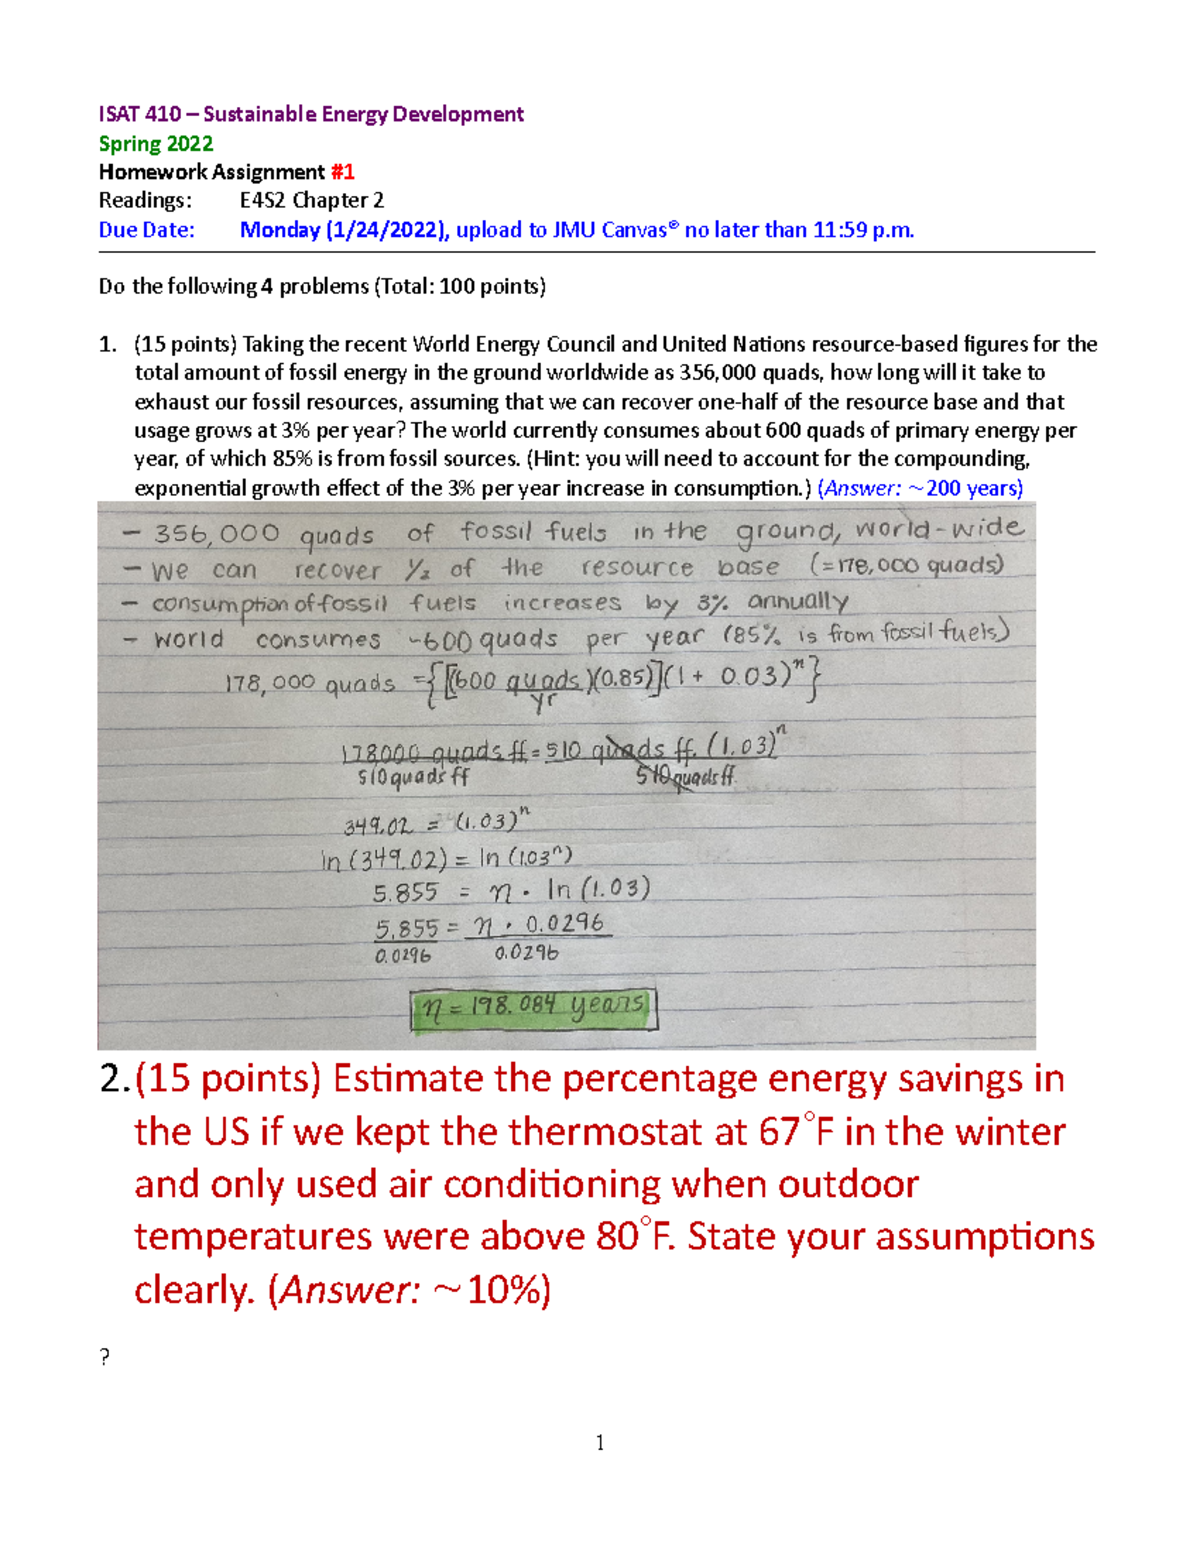 ISAT 410 – Sustainable Energy Development
Spring 2022
Homework Assignment #1
Readings: E4S2 Chapter 2
Due Date: Monday (1/24/2022), upload to JMU Canvas® no later than 11:59 p.m.
Do the following 4 problems (Total: 100 points)
1. (15 points) Taking the recent World Energy Council and United Nations resource-based figures for the
total amount of fossil energy in the ground worldwide as 356,000 quads, how long will it take to
exhaust our fossil resources, assuming that we can recover one-half of the resource base and that
usage grows at 3% per year? The world currently consumes about 600 quads of primary energy per
year, of which 85% is from fossil sources. (Hint: you will need to account for the compounding,
exponential growth effect of the 3% per year increase in consumption.) (Answer: ~200 years)
– 356,000 quads of fossil fuels in the ground, world-wide
– we can recover ½ of the resource base (=178,000 quads)
– consumption of fossil fuels increases by 3% annually
– world consumes ~600 quads per year (85% is from fossil fuels)
178,000 quads = {[(600 quads/yr)(0.85)](1 + 0.03)ⁿ}
178000 quads ff = 510 quads ff. (1.03)ⁿ
510 quads ff 510 quads ff.
349.02 = (1.03)ⁿ
ln (349.02) = ln (1.03ⁿ)
5.855 = n · ln (1.03)
5.855 = n · 0.0296
0.0296 0.0296
n = 198.084 years
2. (15 points) Estimate the percentage energy savings in
the US if we kept the thermostat at 67°F in the winter
and only used air conditioning when outdoor
temperatures were above 80°F. State your assumptions
clearly. (Answer: ~10%)
?
1